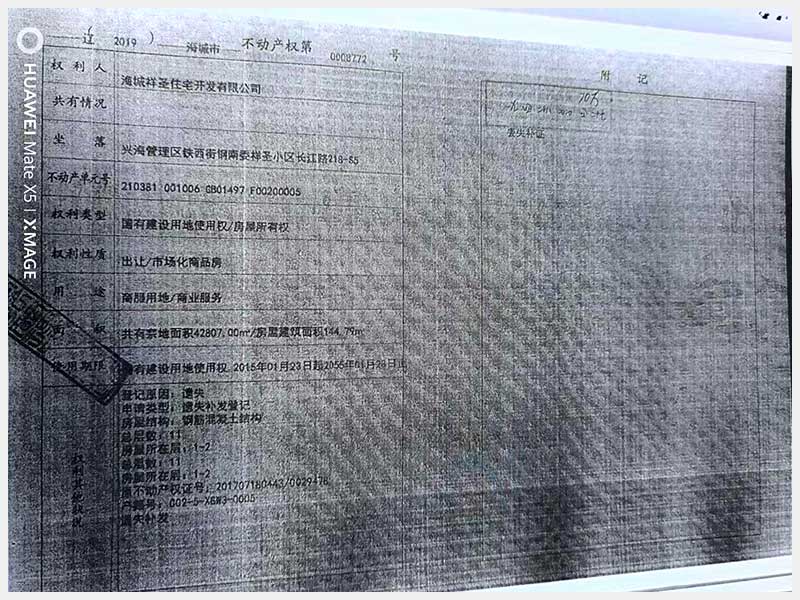 辽 2019 ） 海城市 不动产权第 0008772 号
权利人 海城祥圣住宅开发有限公司
共有情况
坐落 兴海管理区铁西街钢南委祥圣小区长江路218-S5
不动产单元号 210381 001006 GB01497 F00200005
权利类型 国有建设用地使用权/房屋所有权
权利性质 出让/市场化商品房
用途 商服用地/商业服务
面积 共有宗地面积42807.00㎡/房屋建筑面积144.79㎡
使用期限 国有建设用地使用权 2015年01月23日起2055年01月
权利其他状况
登记原因：遗失
申请类型：遗失补发登记
房屋结构：钢筋混凝土结构
总层数：11
房屋所在层：1-2
总层数：11
房屋所在层：1-2
原不动产权证号：201707180443/0029478
户籍号：002-5-X6W3-0005
遗失补发
附记
遗失补证
HUAWEI Mate X5 | XMAGE